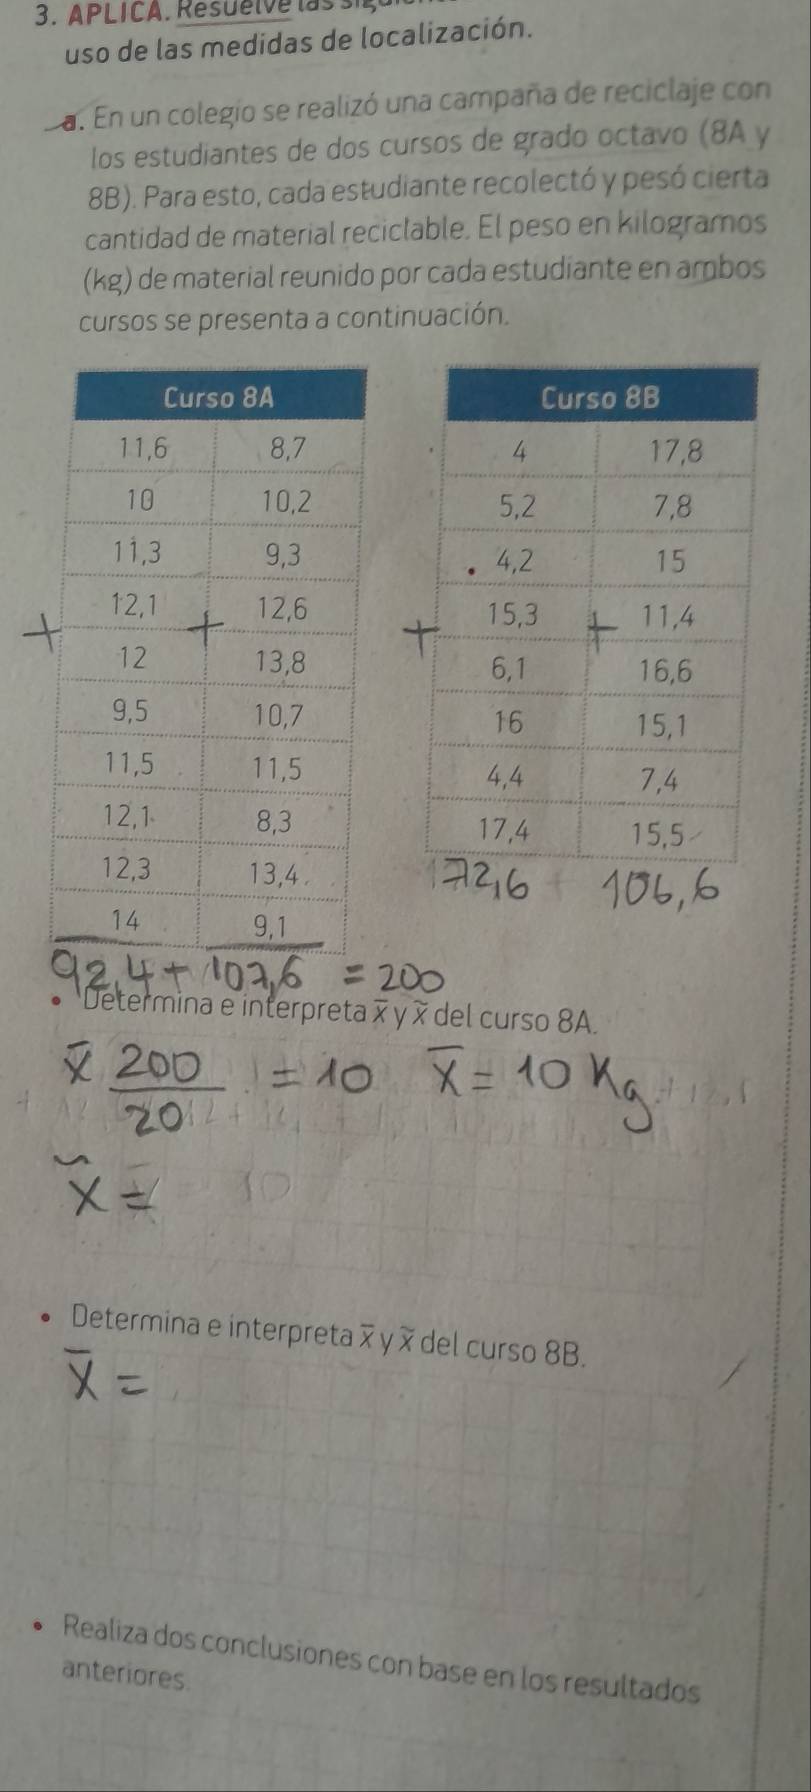 3. APLICA. Resuelve las
uso de las medidas de localización.
a. En un colegio se realizó una campaña de reciclaje con
los estudiantes de dos cursos de grado octavo (8A y
8B). Para esto, cada estudiante recolectó y pesó cierta
cantidad de material reciclable. El peso en kilogramos
(kg) de material reunido por cada estudiante en ambos
cursos se presenta a continuación.
Curso 8A
11,6 8,7
10 10,2
11,3 9,3
12,1 12,6
12 13,8
9,5 10,7
11,5 11,5
12,1 8,3
12,3 13,4
14 9,1
+ +
92,4 + 107,6 = 200
Curso 8B
4 17,8
5,2 7,8
4,2 15
15,3 11,4
6,1 16,6
16 15,1
4,4 7,4
17,4 15,5
+ +
172,6 106,6
• Determina e interpreta x̅ y x̃ del curso 8A.
x̅ 200/20 = 10 x̅ = 10 Kg
x̃ =
• Determina e interpreta x̅ y x̃ del curso 8B.
x̅ =
• Realiza dos conclusiones con base en los resultados
anteriores.